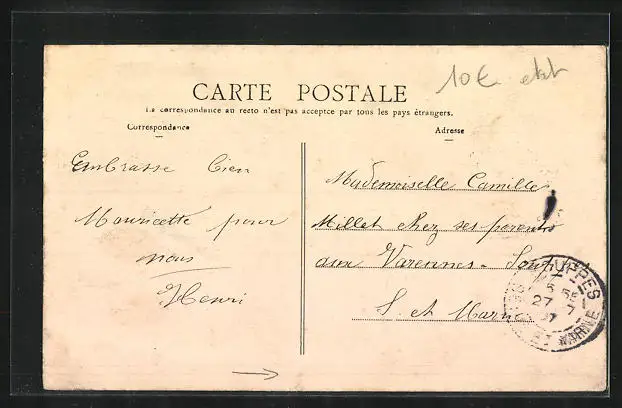 10€ etat
CARTE POSTALE
La correspondance au recto n'est pas acceptée par tous les pays étrangers.
Correspondance
Adresse
Embrasse bien
Mouricette pour
nous
Henri
Mademoiselle Camille
Millet chez ses parents
aux Varennes - Souppes
S. et Marne
SOUPPES
5 55
27 7
07
ET MARNE